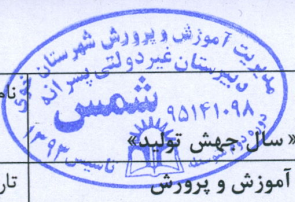 مدیریت آموزش و پرورش شهرستان خوی
دبیرستان غیر دولتی پسرانه
شمس
۹۵۱۴۱۰۹۸
دوره دوم
تاسیس ۱۳۹۳
نام
«سال جهش تولید»
آموزش و پرورش
تار